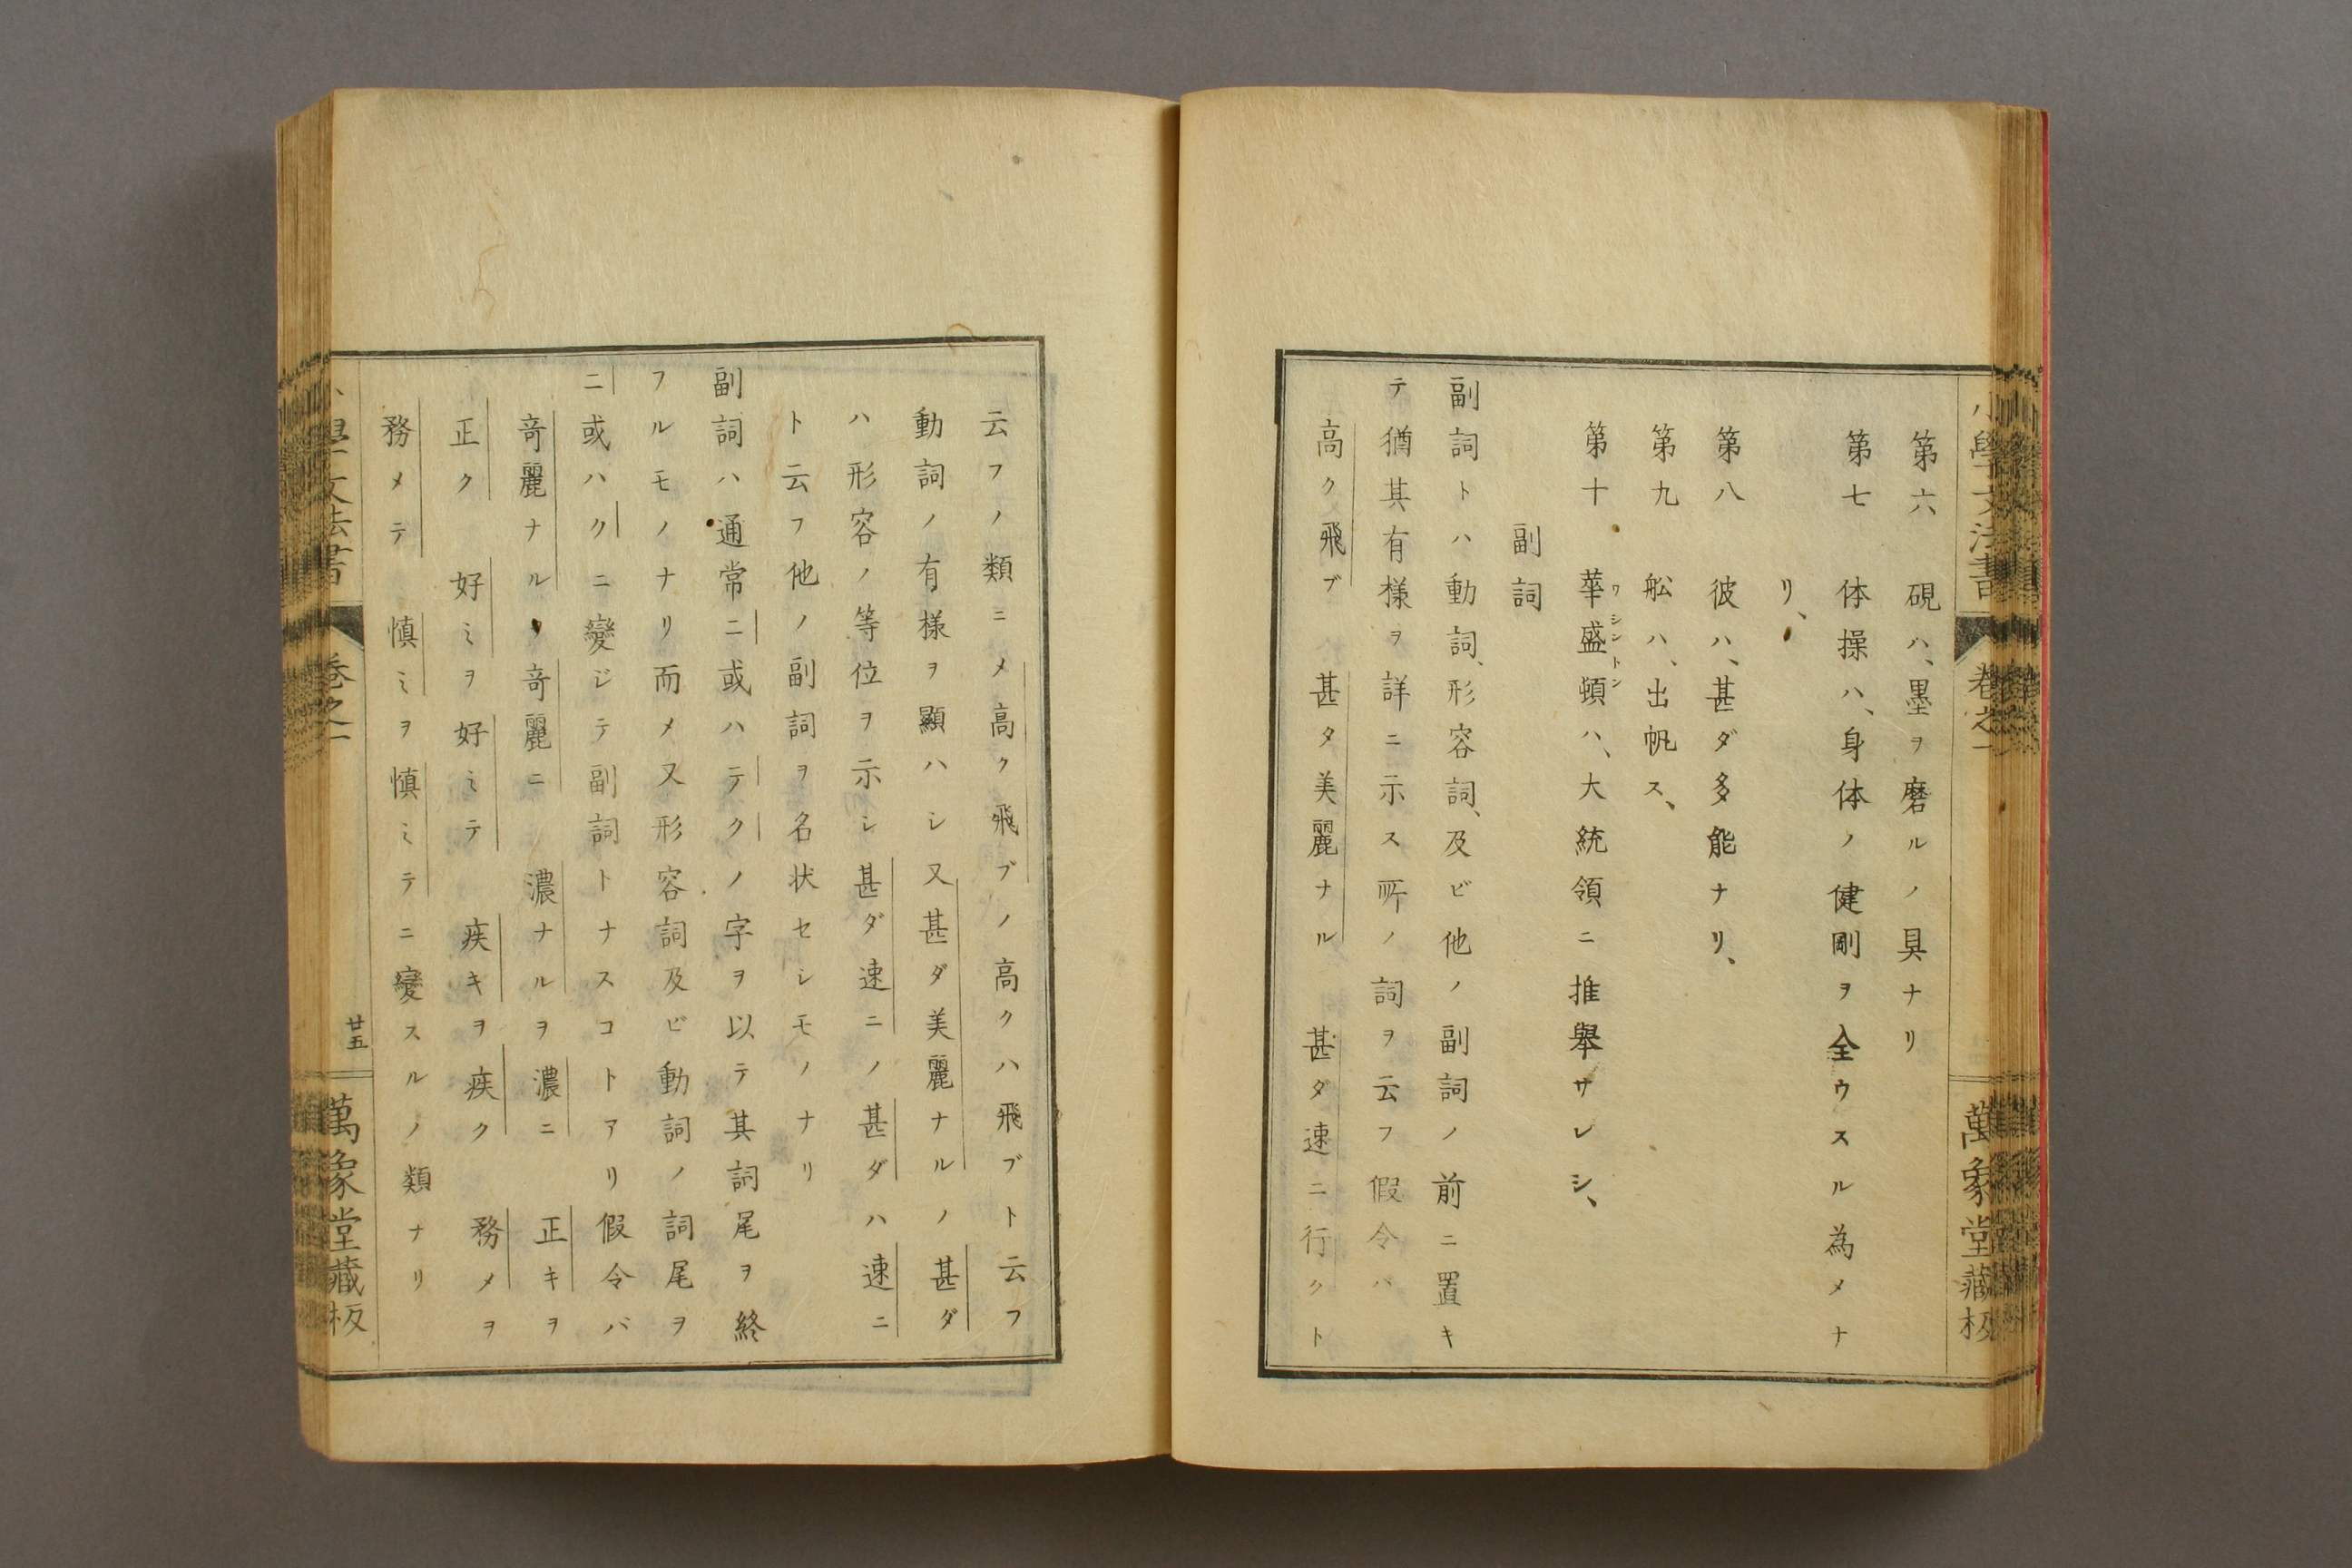 小學文法書 卷之一 萬象堂藏板
第六 硯ハ、墨ヲ磨ルノ具ナリ
第七 体操ハ、身体ノ健剛ヲ全ウスル為メナ
リ、
第八 彼ハ、甚ダ多能ナリ、
第九 舩ハ、出帆ス、
第十 華盛頓ハ、大統領ニ推舉サレシ、
ワシントン
副詞
副詞トハ動詞、形容詞、及ビ他ノ副詞ノ前ニ置キ
テ猶其有様ヲ詳ニ示ス所ノ詞ヲ云フ假令バ
高ク飛ブ 甚タ美麗ナル 甚ダ速ニ行クト
云フノ類ニメ高ク飛ブノ高クハ飛ブト云フ
動詞ノ有様ヲ顯ハシ又甚ダ美麗ナルノ甚ダ
ハ形容ノ等位ヲ示シ甚ダ速ニノ甚ダハ速ニ
ト云フ他ノ副詞ヲ名状セシモノナリ
副詞ハ通常ニ或ハテクノ字ヲ以テ其詞尾ヲ終
フルモノナリ而メ又形容詞及ビ動詞ノ詞尾ヲ
ニ或ハクニ變ジテ副詞トナスコトアリ假令バ
竒麗ナルヲ竒麗ニ 濃ナルヲ濃ニ 正キヲ
正ク 好ミヲ好ミテ 疾キヲ疾ク 務メヲ
務メテ 慎ミヲ慎ミテニ變スルノ類ナリ
小學文法書 卷之一 廿五 萬象堂藏板